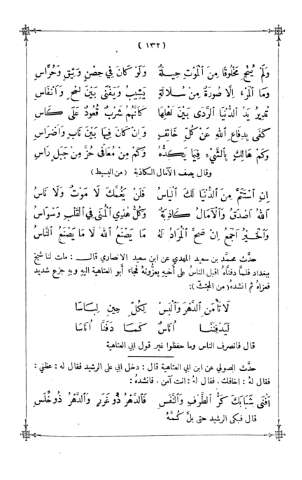 ( ١٣٢ )
وَلَمْ يُنْجِ مَخْلُوقًا مِنَ الْمَوْتِ حِيلَةٌ وَلَوْ كَانَ فِي حِصْنٍ وَثِيقٍ وَحُرَّاسِ
وَمَا الْمَرْءُ إِلَّا صُورَةٌ مِنْ سُلَالَةٍ يَشِيبُ وَيَفْنَى بَيْنَ لَمْحٍ وَأَنْفَاسِ
تُدِيرُ يَدُ الدُّنْيَا الرَّدَى بَيْنَ أَهْلِهَا كَأَنَّهُمْ شَرْبٌ قُعُودٌ عَلَى كَاسِ
كَفَى بِدِفَاعِ اللهِ عَنْ كُلِّ خَائِفٍ وَإِنْ كَانَ فِيهَا بَيْنَ نَابٍ وَأَضْرَاسِ
وَكَمْ هَالِكٍ بِالشَّيْءِ فِيهَا يَكُدُّهُ وَكَمْ مِنْ مُعَافًى حُزَّ مِنْ جَبَلٍ رَاسِ
وقال يصف الآمال الكاذبة (من البسيط)
إِنِ اسْتَتَمَّ مِنَ الدُّنْيَا لَكَ الْيَاسُ فَلَنْ يَغُمَّكَ لَا مَوْتٌ وَلَا نَاسُ
اَللهُ أَصْدَقُ وَالْآمَالُ كَاذِبَةٌ وَكُلُّ هٰذِي الْمُنَى فِي الْقَلْبِ وَسْوَاسُ
وَالْخَيْرُ أَجْمَعُ إِنْ صَحَّ الْمُرَادُ لَهُ مَا يَصْنَعُ اللهُ لَا مَا يَصْنَعُ النَّاسُ
حدَّث محمَّد بن سعيد المهدي عن ابن سعيد الانصاري قال: مات لنا شيخ
ببغداد فلمَّا دفنَّاهُ اقبل الناس على أخيهِ يعزّونهُ فجاء ابو العتاهية اليهِ وبهِ جزع شديد
فعزاهُ ثم انشدهُ (من المجتث):
لَا تَأْمَنِ الدَّهْرَ وَالْبَسْ لِكُلِّ حِينٍ لِبَاسَا
لَيَدْفِنَنَّا أُنَاسٌ كَمَا دَفَنَّا أُنَاسَا
قال فانصرف الناس وما حفظوا غير قول ابي العتاهية
حدَّث الصولي عن ابن ابي العتاهية قال: دخل ابي على الرشيد فقال لهُ: عظني:
فقال لهُ: اخافك. فقال لهُ: انت آمن. فانشدهُ:
أَفْنَى شَبَابَكَ كَرُّ الطَّرْفِ وَالنَّفَسِ فَالدَّهْرُ ذُو غَرَرٍ وَالدَّهْرُ ذُو خُلَسِ
قال فبكى الرشيد حتى بلَّ كُمَّهُ